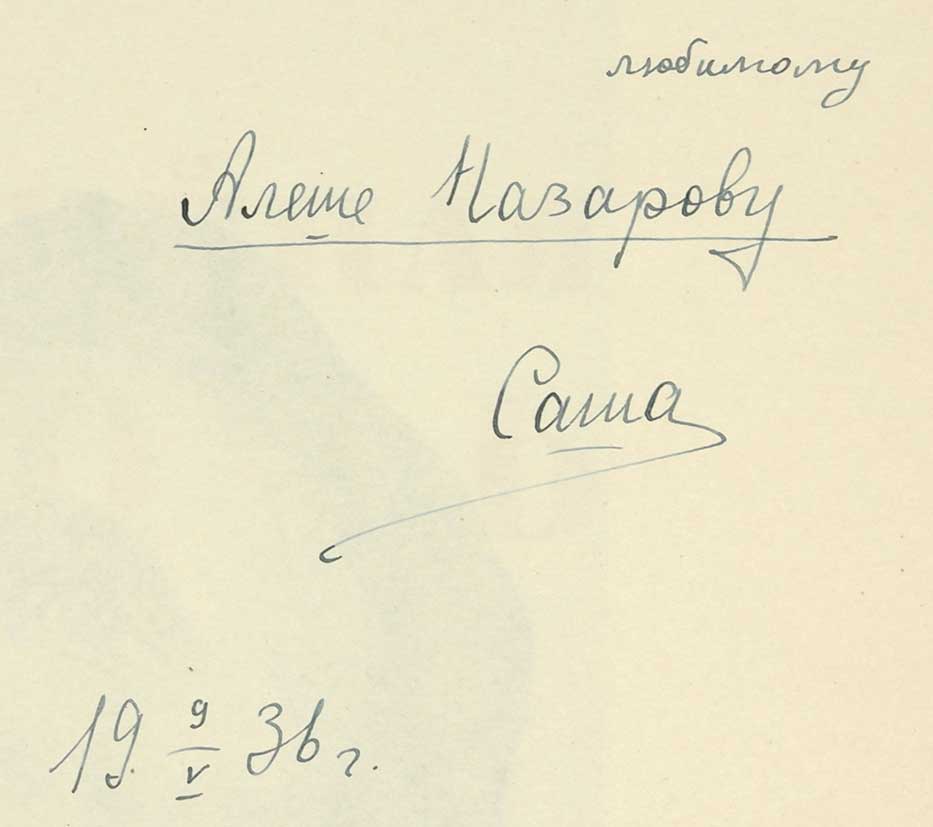 любимому
Алеше Назарову
Саша
19 9/V 36 г.